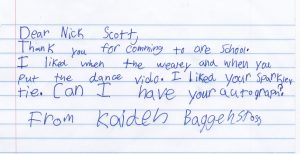 Dear Nick Scott,
Thank you for comming to are school.
I liked when the wearey and when you
put the dance vido. I liked your sparkley
tie. Can I have your autograph?
From Kaiden Baggehstoss